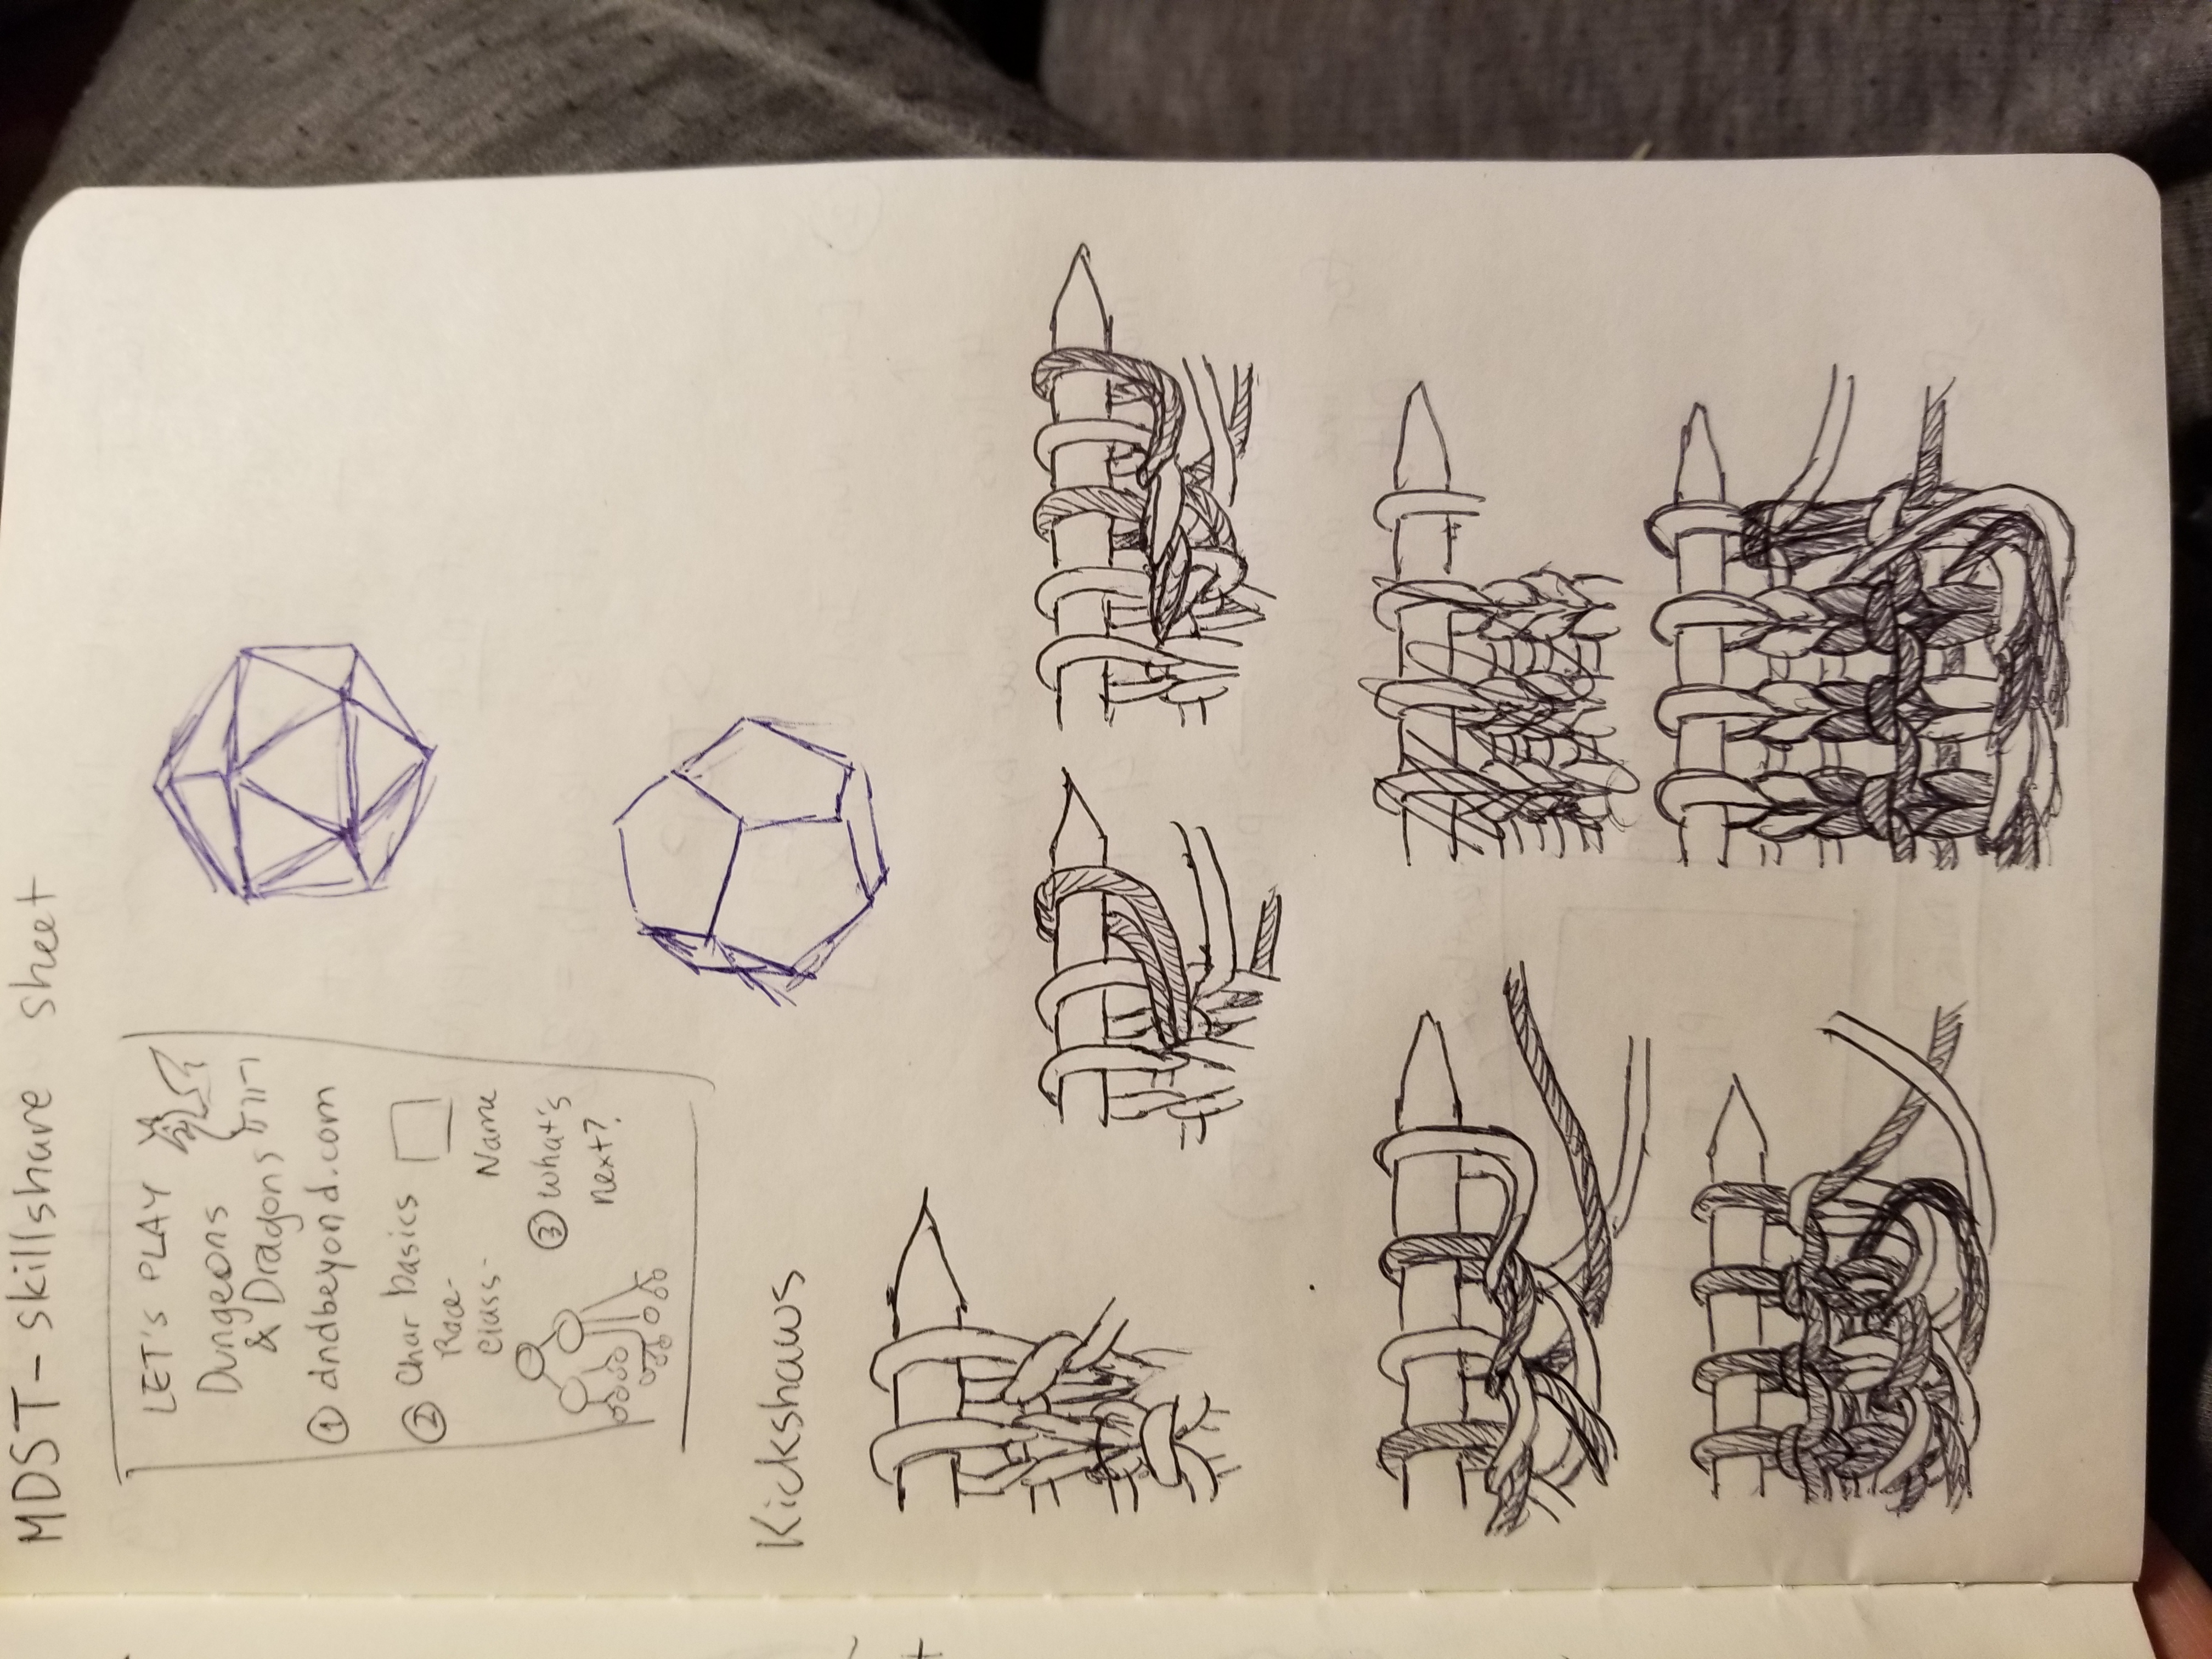 MDST - skillshare sheet
LET'S PLAY
Dungeons
& Dragons
① dndbeyond.com
② Char basics
Race-
class-
Name
③ what's
next?
Kickshaws